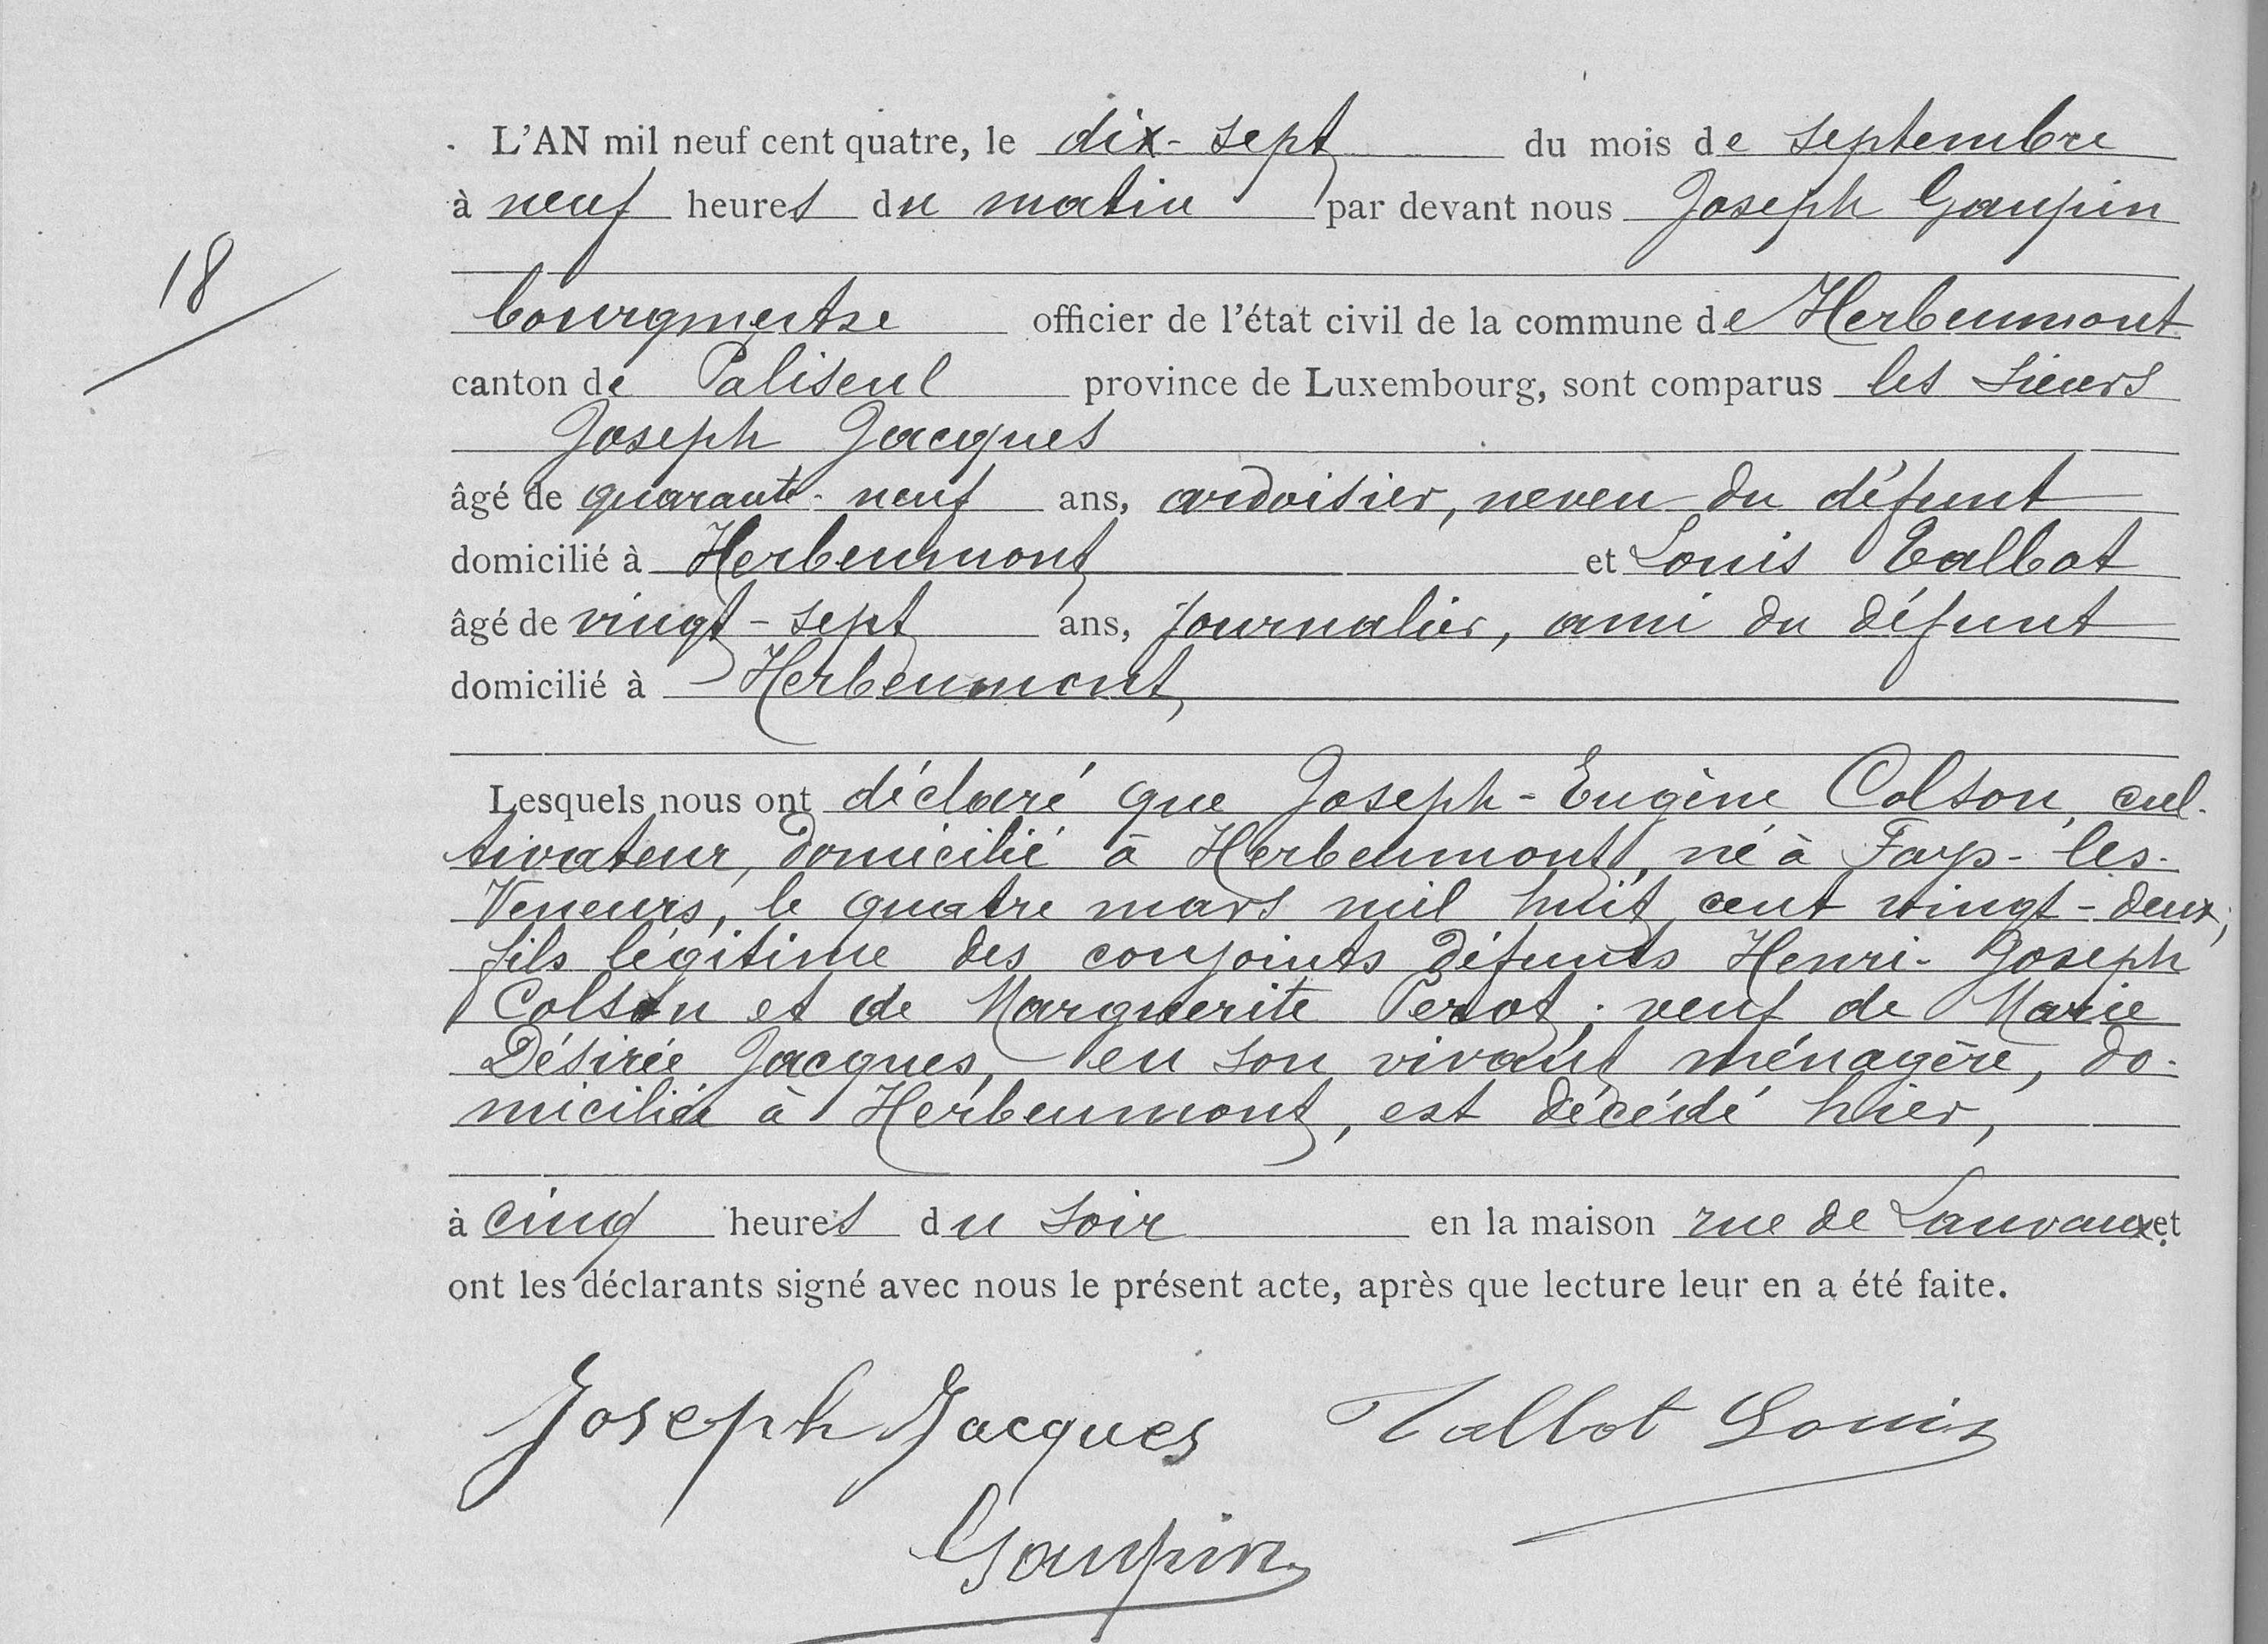 L'AN mil neuf cent quatre, le dix-sept du mois de septembre
à neuf heures du matin par devant nous Joseph Gaupin
18
bourgmestre officier de l'état civil de la commune de Herbeumont
canton de Paliseul province de Luxembourg, sont comparus les sieurs
Joseph Jacques
âgé de quarante-neuf ans, ardoisier, neveu du défunt
domicilié à Herbeumont et Louis Talbot
âgé de vingt-sept ans, journalier, ami du défunt
domicilié à Herbeumont,
Lesquels nous ont déclaré que Joseph-Eugène Colson, cul-
tivateur, domicilié à Herbeumont, né à Fays-les-
Veneurs, le quatre mars mil huit cent vingt-deux;
fils légitime des conjoints défunts Henri-Joseph
Colson et de Marguerite Perot; veuf de Marie
Désirée Jacques, en son vivant ménagère, do-
miciliée à Herbeumont, est décédé hier,
à cinq heures du soir en la maison rue de Lauvaux et
ont les déclarants signé avec nous le présent acte, après que lecture leur en a été faite.
Joseph Jacques Talbot Louis
Gaupin